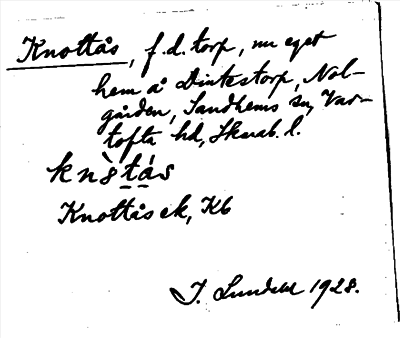 Knottås, f.d. torp, nu eget
hem å Dintestorp, Nol-
gården, Sandhems sn, Var-
tofta hd, Skarab. l.
Knottås ek, Kb
J. Lundahl 1928.